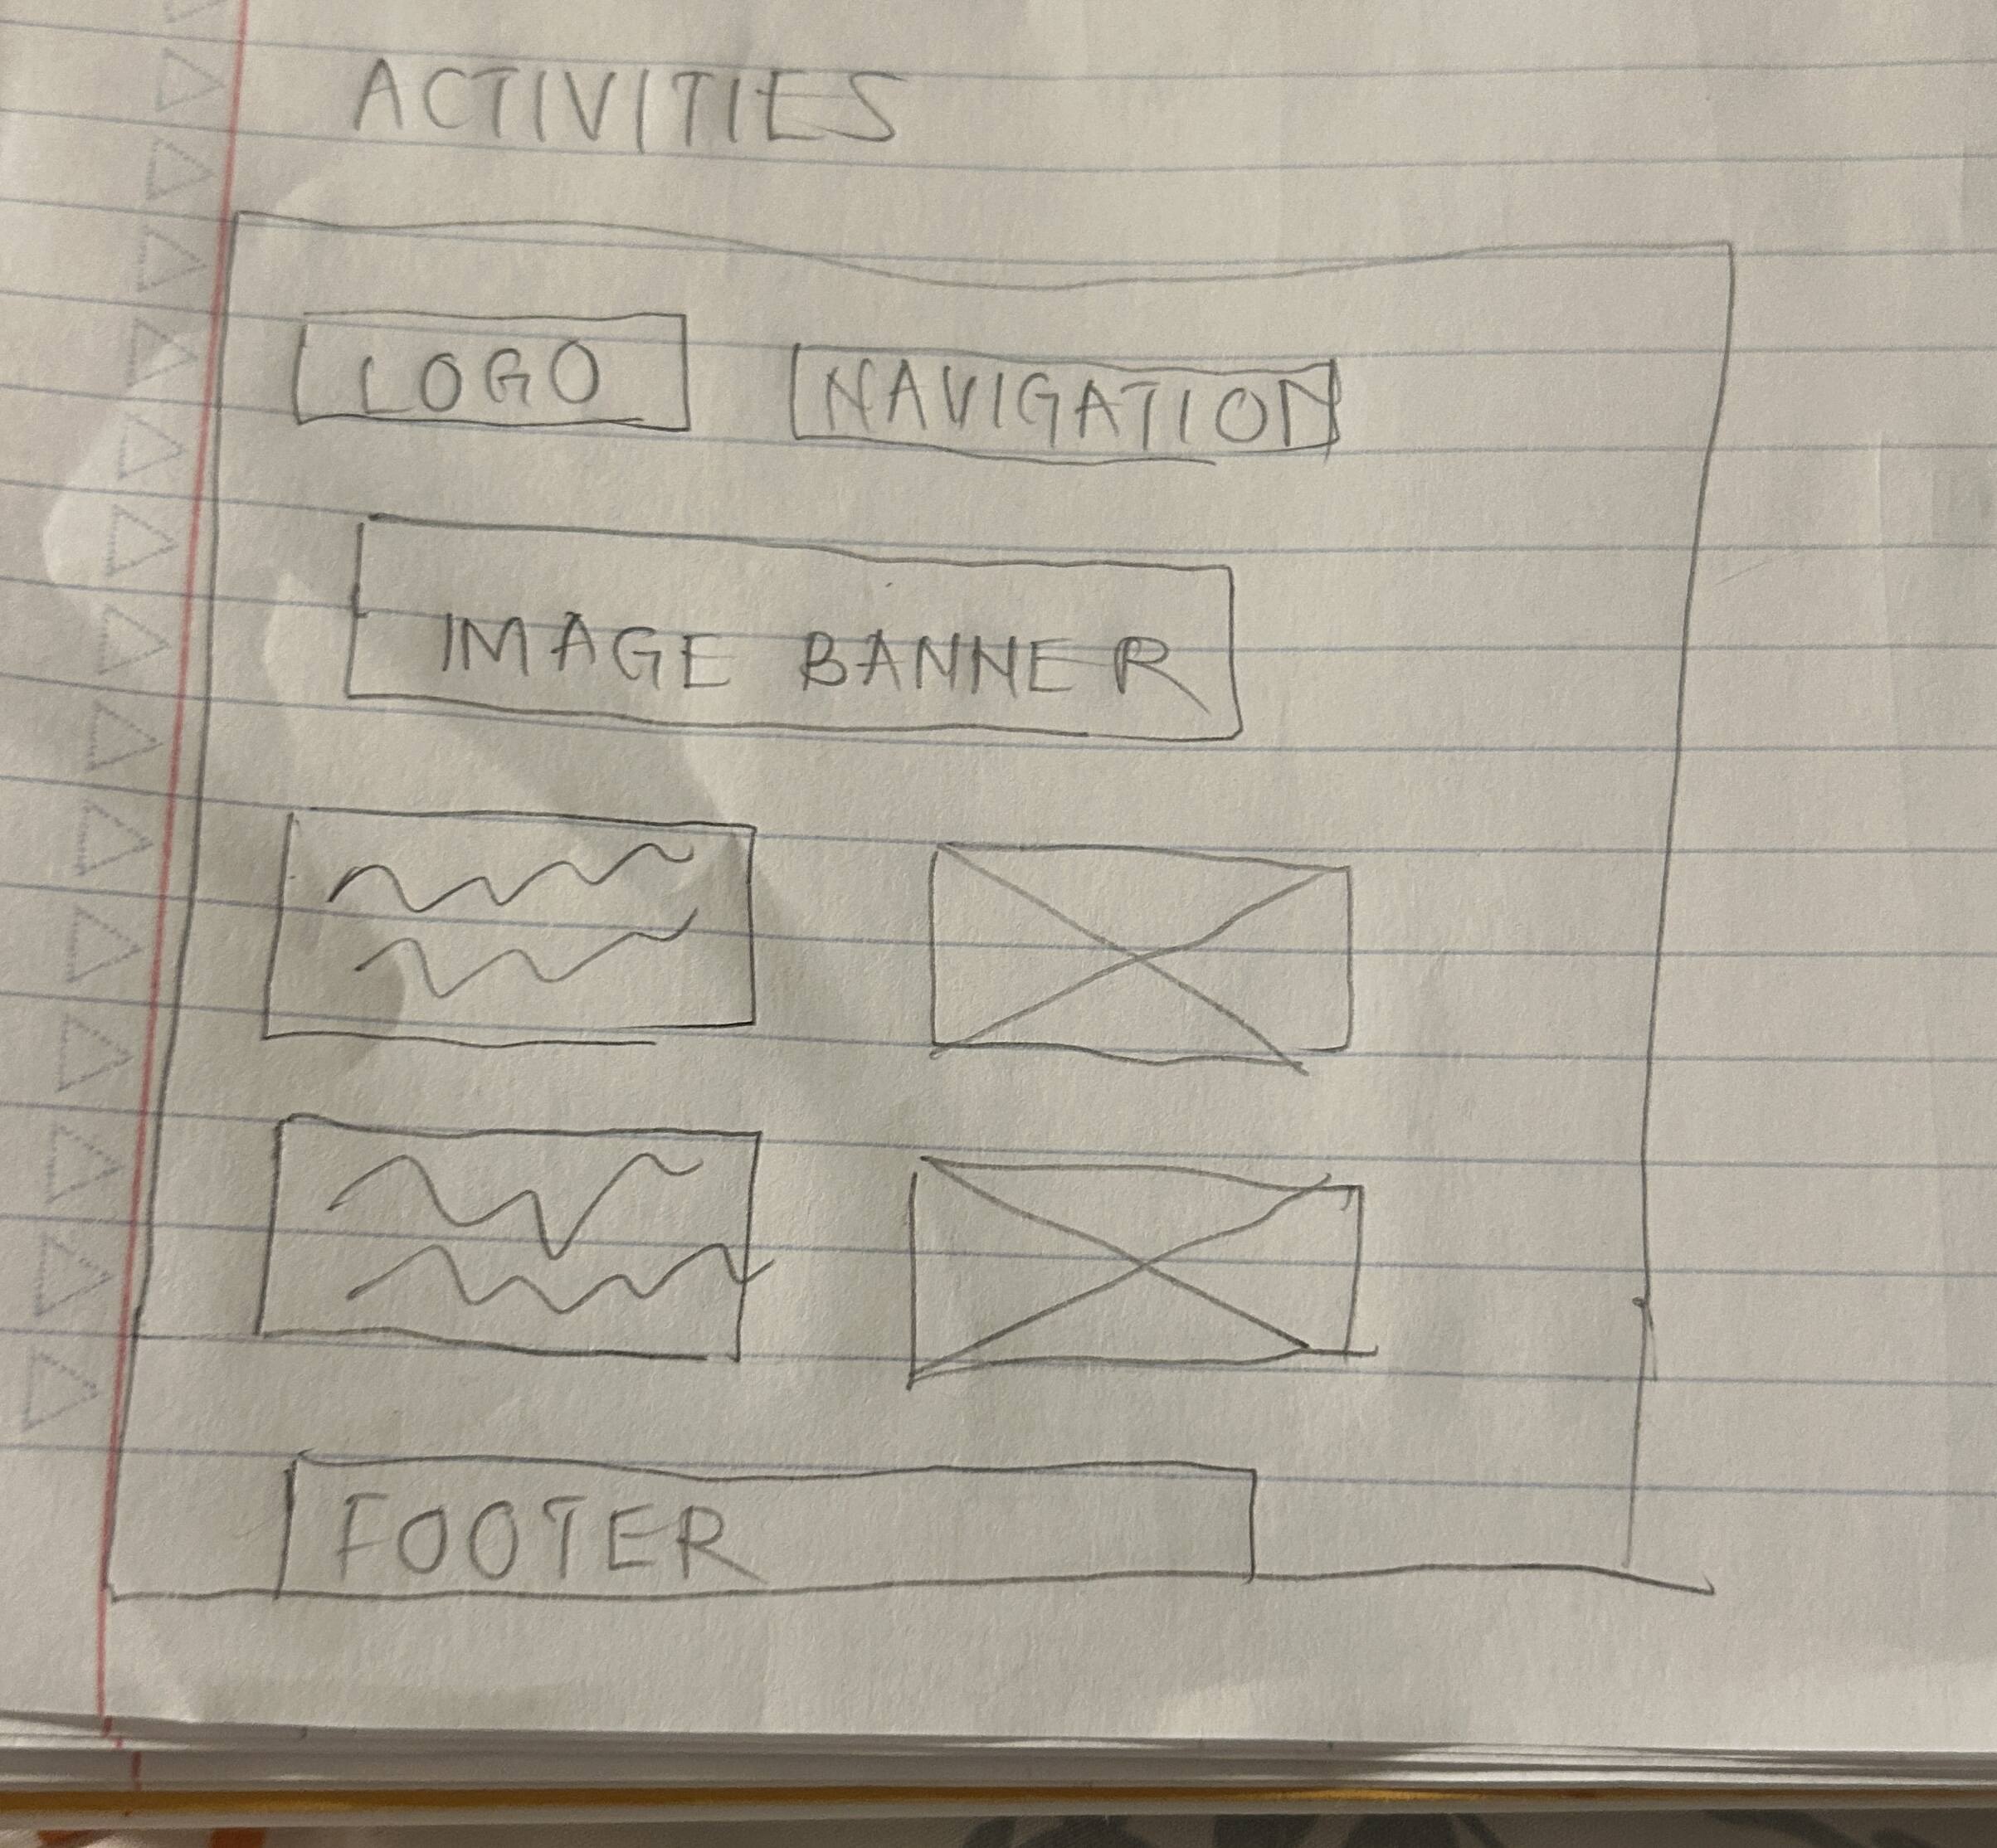 ACTIVITIES
LOGO NAVIGATION
IMAGE BANNER
FOOTER